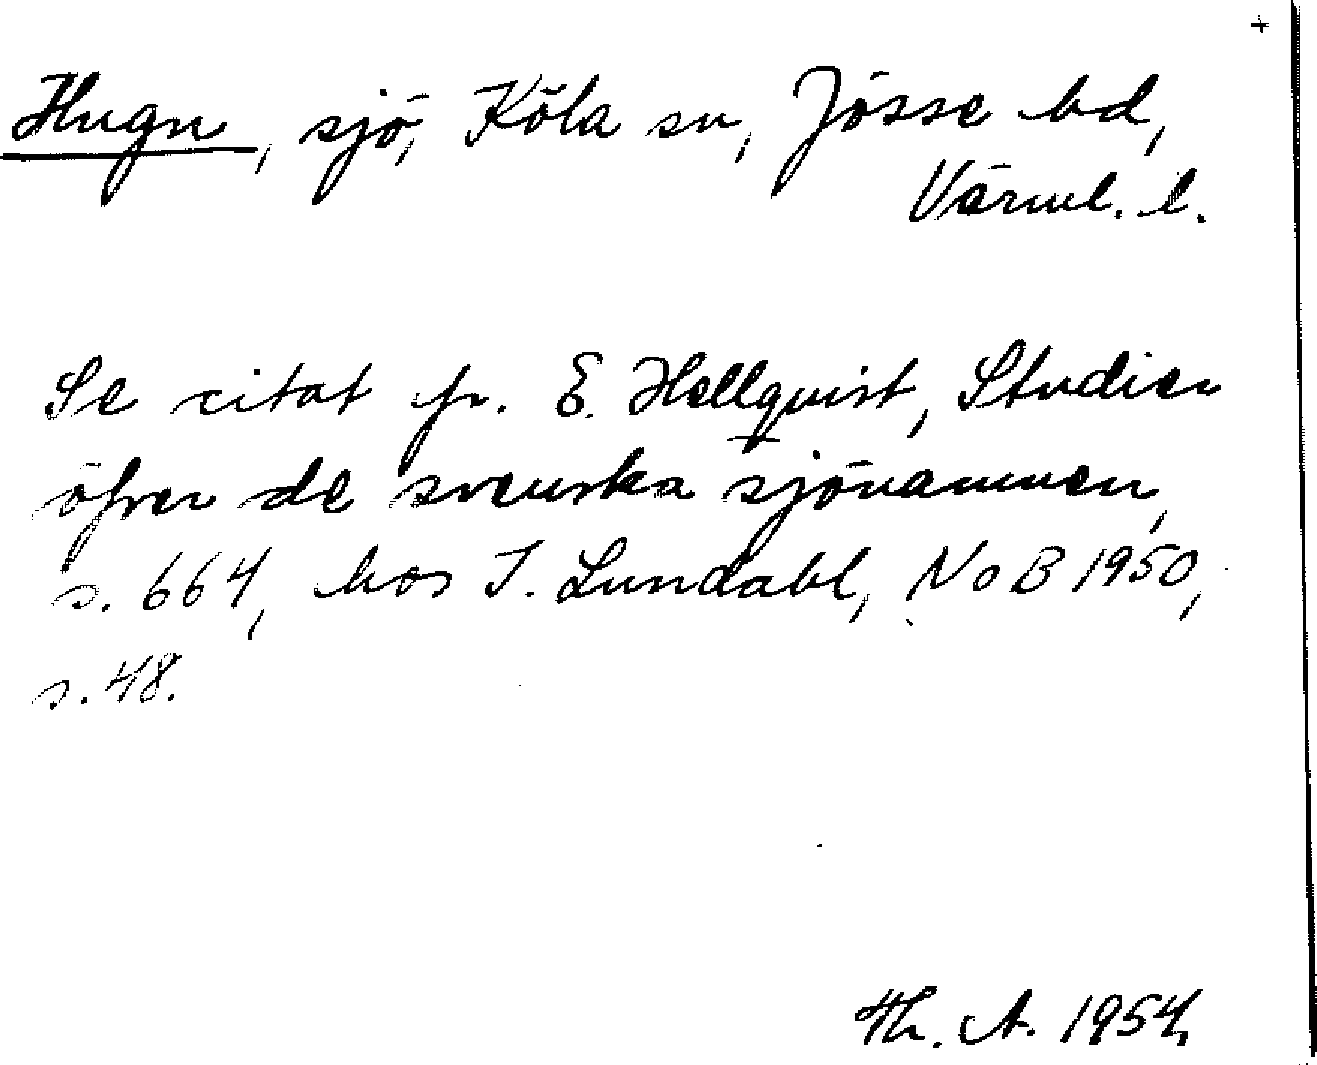 +
Hugn, sjö, Köla sn, Jösse hd,
Värml. l.
Se citat fr. E. Hellquist, Studier
öfver de svenska sjönamnen,
s. 664, hos I. Lundahl, NoB 1950,
s. 48.
Th. A. 1954